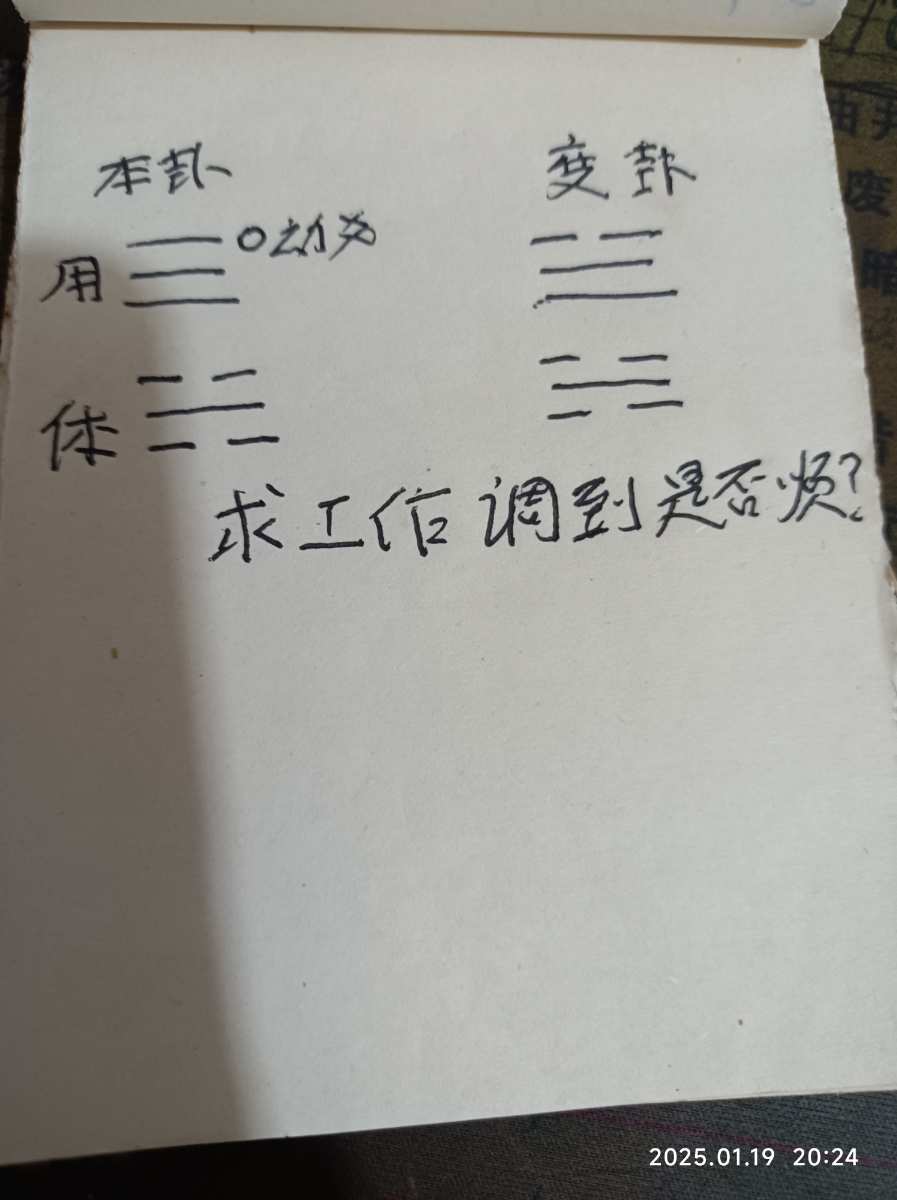 本卦 变卦
用 O动爻
体
求工作调到是否顺？
由井
废
暗
2025.01.19 20:24